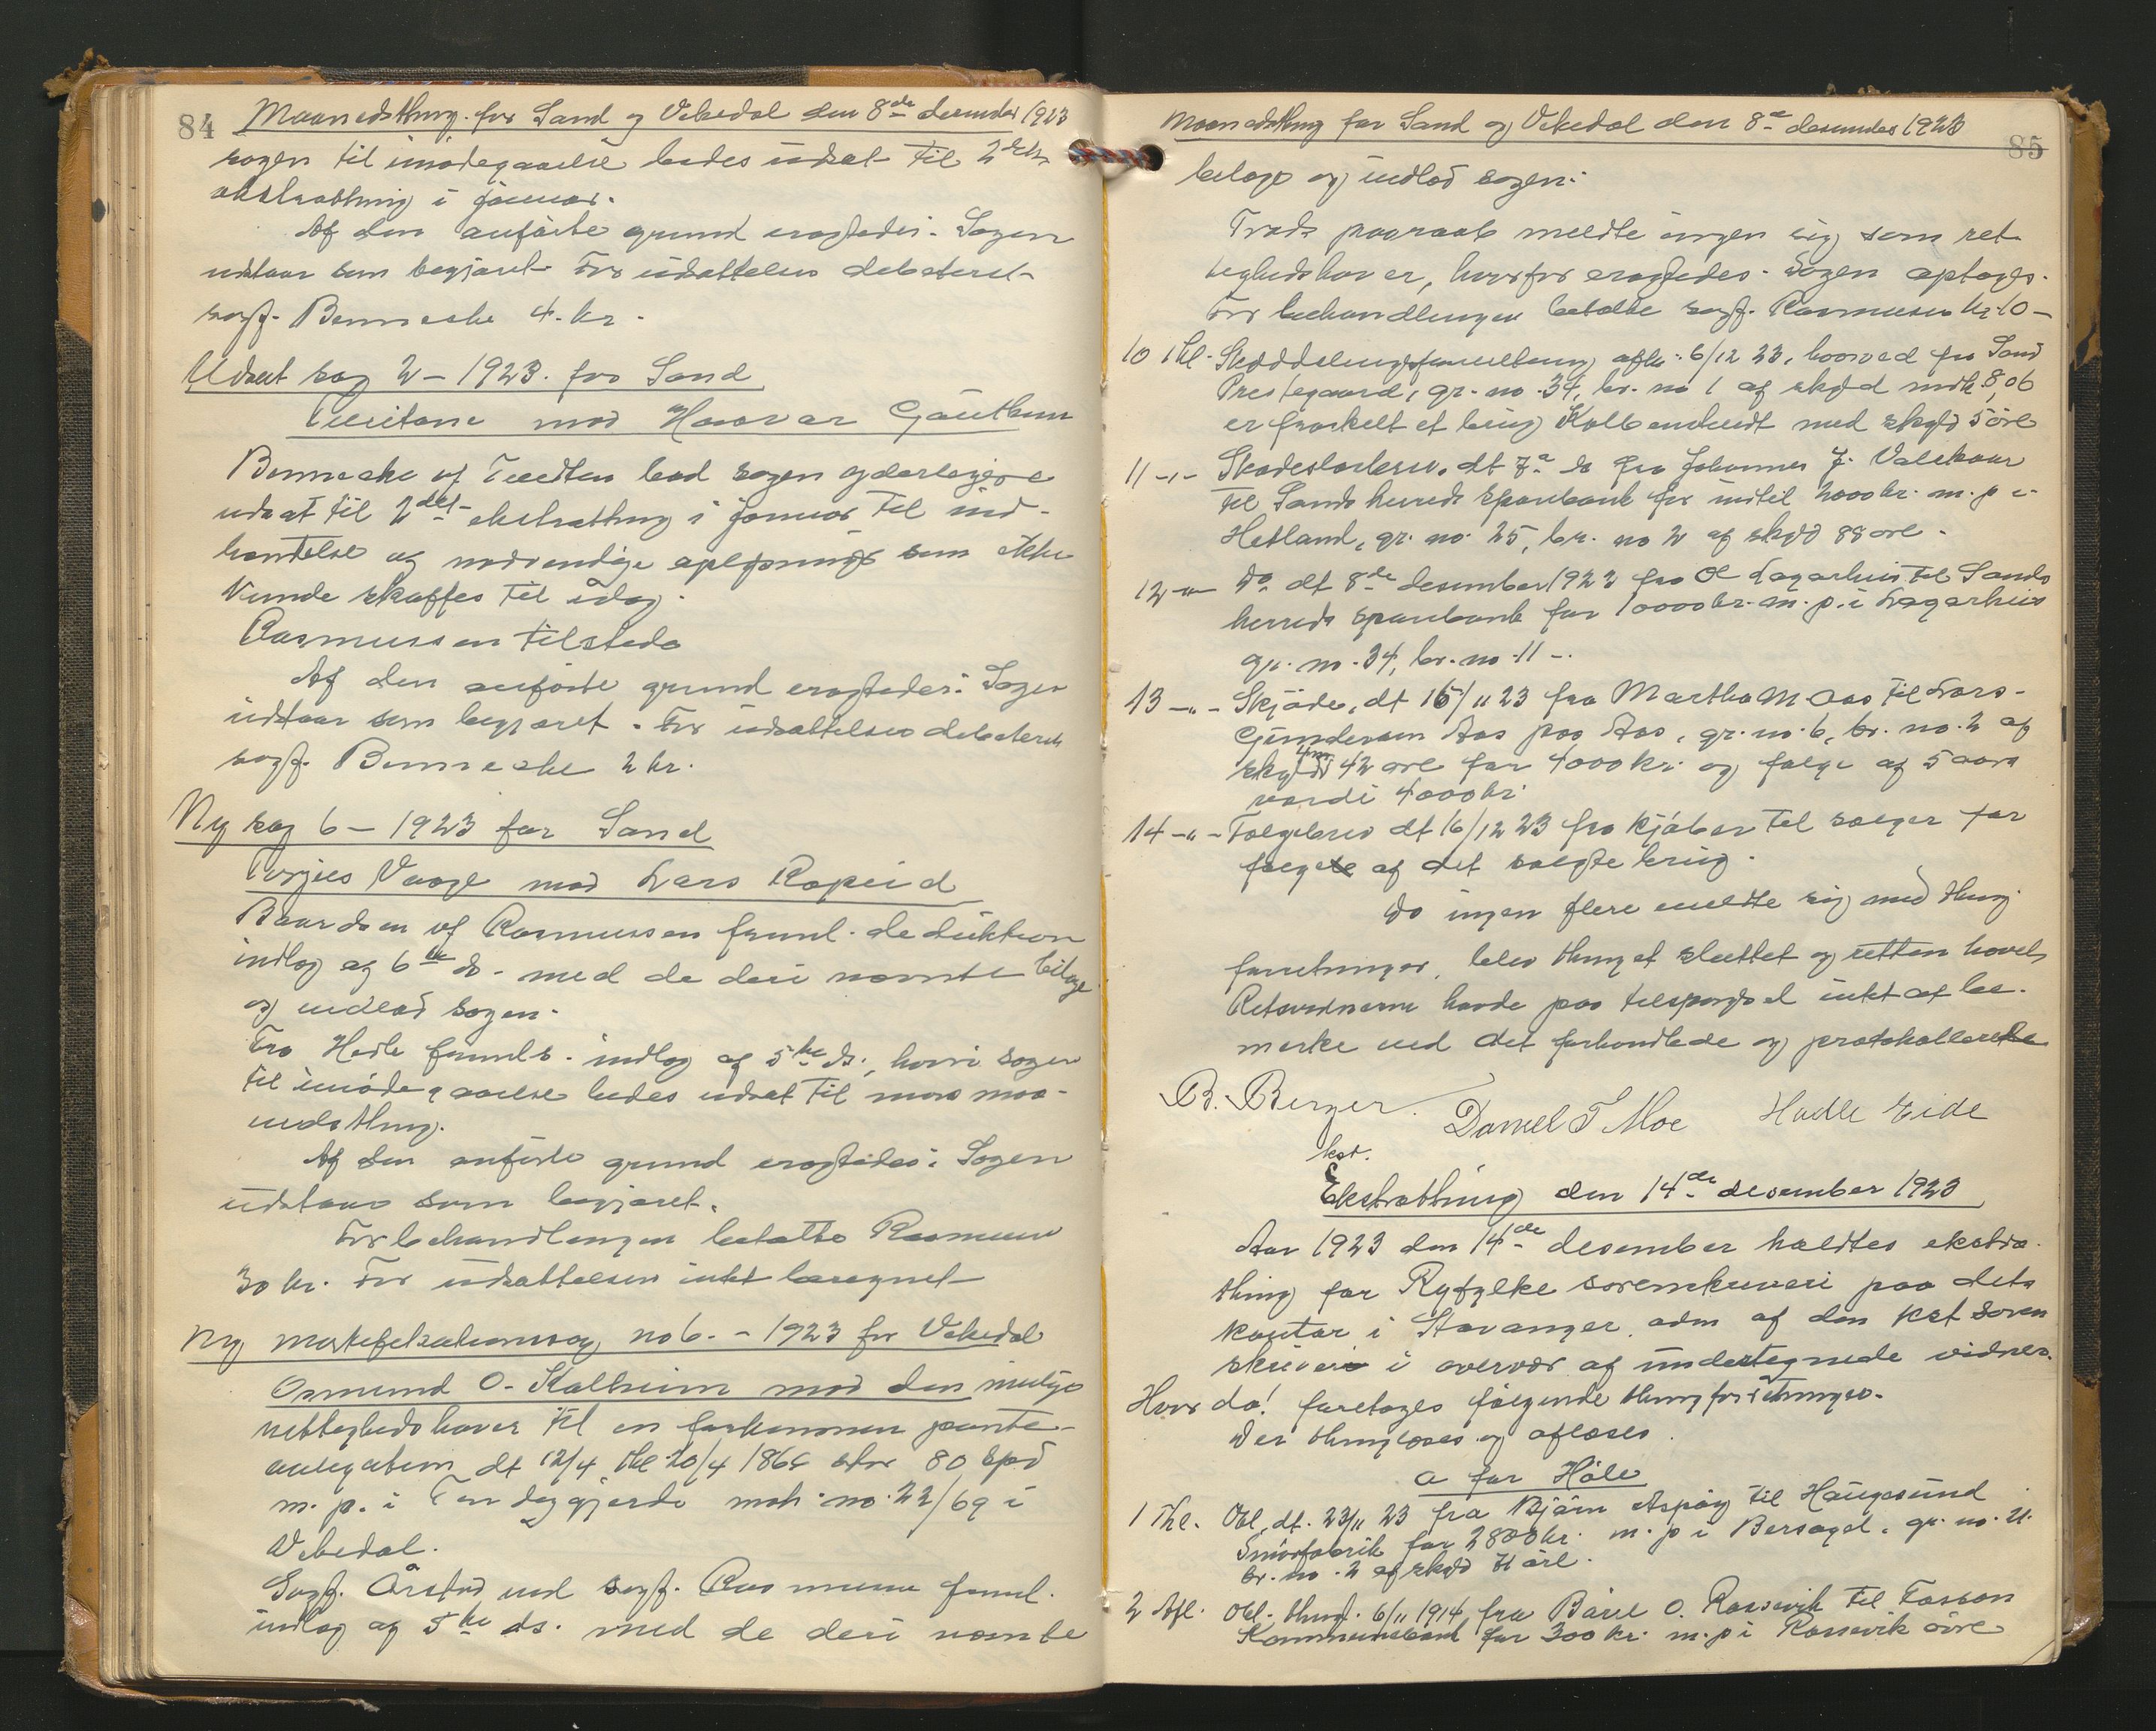 84 Maanedsthing for Sand og Vikedal den 8de desember 1923
sagen til imødegaaelse bedes udsat til 2det
ekstrathing i januar.
Af den anførte grund eragtedes: Sagen
udstaar som begjæret. For udsættelsen debeteret
sagf. Bennecke 4. kr.
Udsat sag 2 - 1923. for Sand
mod Haavar
Bennecke vf Tvedten bad sagen yderligere
udsat til 2det ekstrathing i januar til ind-
hentelse af nødvendige oplysninger som ikke
kunde skaffes til idag.
Rasmussen tilstede
Af den anførte grund eragtedes: Sagen
udstaar som begjæret. For udsættelsen debeteret
sagf. Bennecke 2 kr.
Ny sag 6 - 1923 for Sand
Torgils Vaage mod Lars Ropeid
Baardsen vf Rasmussen freml. deduktion
indlæg af 6te ds. med de deri nævnte bilage
og indlod sagen.
Fra Hesle fremls. indlæg af 5te ds., hvori sagen
til imødegaaelse bedes udsat til næste maa-
nedsthing.
Af den anførte grund eragtedes: Sagen
udstaar som begjæret.
For behandlingen betalte Rasmussen
30 kr. For udsættelsen intet beregnet
Ny mortifikationssag no 6. - 1923 for Vikedal
Osmund O. Kalheim mod den mulige
rettighedshaver til en forkommen pante-
obligation dt 12/4 thl 20/4 186 stor 80 Spd
m. p. i matr. no. 22/69 i
Vikedal.
Sagf. Årstad ved sagf. Rasmussen freml.
indlæg af 5te ds. med de deri nævnte
Maanedsthing for Sand og Vikedal den 8de desember 1923 85
bilage og indlod sagen.
Trods paaraab meldte ingen sig som ret-
tighedshaver, hvorfor eragtedes: Sagen optages.
For behandlingen betalte sagf. Rasmussen kr. 10 -
10 Thl. Skylddelingsforretning afh. 6/12 23, hvorved fra Sand
Prestegaard, gr. no. 34, br. no 1 af skyld mrk 8,06
er fraskilt et brug med skyld 5 øre
11 -"- Skadesløsbrev, dt 7de ds fra Johannes J. Valskaar
til Sands herreds Sparebank for indtil 2000 kr. m. p. i
Hetland, gr. no. 25, br. no 2 af skyld 88 øre.
12 -"- Do dt 8de desember 1923 fra Ol Lagarhus til Sands
herreds sparebank for 10000 kr. m. p. i Lagarhus
gr. no. 34, br. no. 11 -.
13 -"- Skjøde, dt 15/11 23 fra Martha M. Aas til Lars
Gundersen Aas paa Aas, gr. no. 6, br. no. 2 af
skyld 42 øre for 4000 kr. og følge af 5 aars
værdi 4000 kr.
14 -"- Følgebrev dt 16/12 23 fra kjøber til sælger for
følge af det solgte brug.
Da ingen flere meldte sig med thing
forretninger, blev thinget sluttet og retten hævet,
Retsvidnerne havde paa tilspørgsel intet at be-
merke ved det forhandlede og protokollerede
B. Berger. Daniel T Moe Hadle Eide
kst.
Ekstrathing den 14de desember 1923
Aar 1923 den 14de desember holdtes ekstra-
thing for Ryfylke sorenskriveri paa dets
kontor i Stavanger, adm af den kst soren
skriver i overvær af undertegnede vidner.
Hvor da! foretoges følgende thingforretninger.
Der thinglæses og aflæses.
a for Høle
1 Thl. Obl. dt. 23/11 23 fra Bjørn Aspøy til Haugesund
Smørfabrik for 2800 kr. m. p i Bersagel, gr. no. 21.
br. no. 2 af skyld øre.
2 Afl. Obl. thingl. 6/11 1914 fra Børe O. Rossevik til Fossan
Kommunebank for 300 kr. m. p i Rossevik øvre